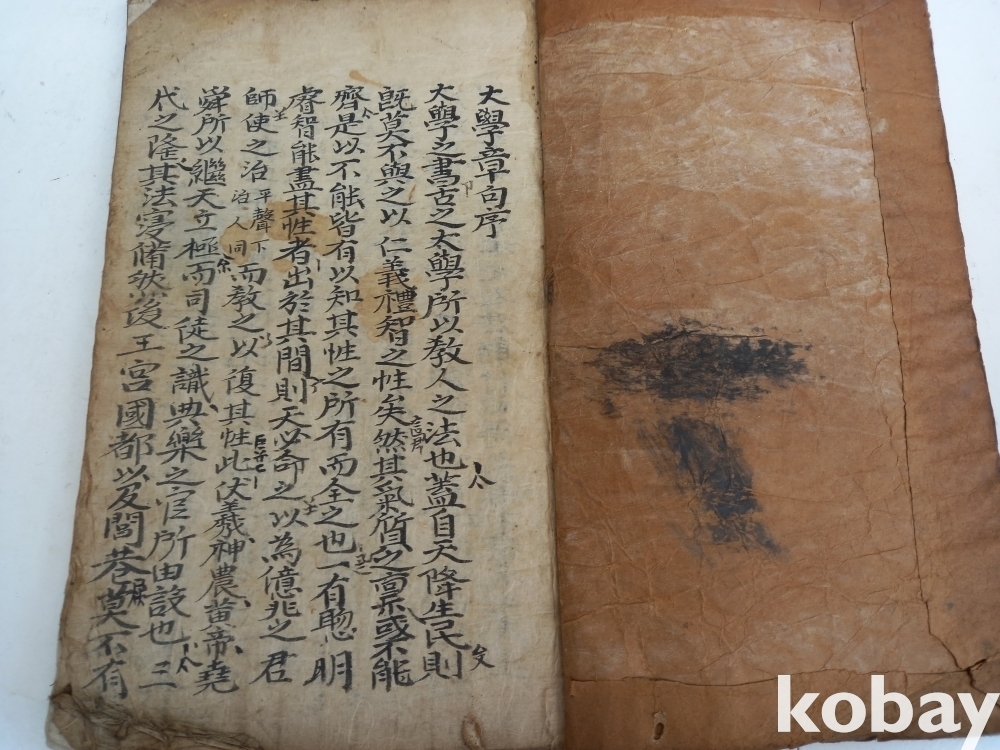 大學章句序
大學之書古之太學所以敎人之法也蓋自天降生民則
旣莫不與之以仁義禮智之性矣然其氣質之稟或不能
齊是以不能皆有以知其性之所有而全之也一有聰明
睿智能盡其性者出於其間則天必命之以為億兆之君
師使之治平聲下治人同而敎之以復其性此伏羲神農黃帝堯
舜所以繼天立極而司徒之識典樂之官所由設也三
代之隆其法寖備然後王宮國都以及閭巷莫不有
kobay